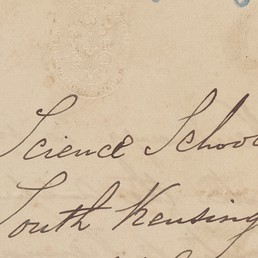 Science Schoo
South Kensing